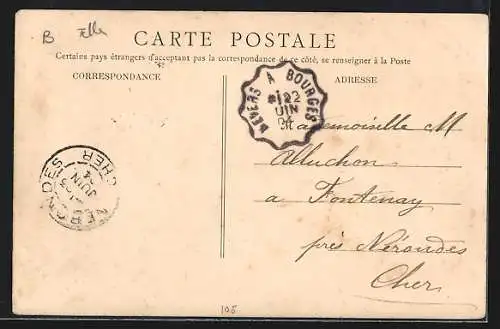 B
CARTE POSTALE
Certains pays étrangers n'acceptant pas la correspondance de ce côté, se renseigner à la Poste
CORRESPONDANCE
ADRESSE
NEVERS A BOURGES
22
JUIN
04
Mademoiselle M
Alluchon
a Fontenay
près Nérondes
Cher
NERONDES
CHER
JUIN
04
105